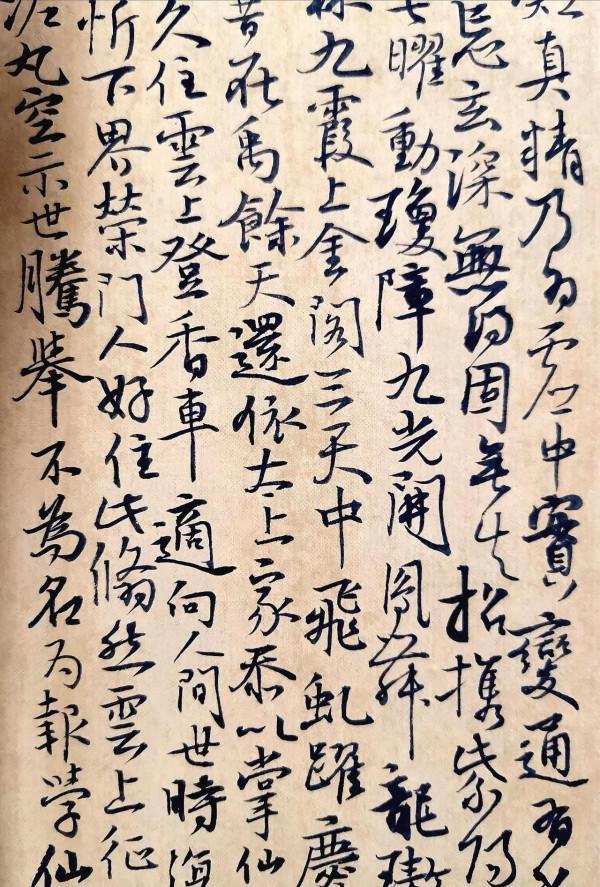 真精乃為虛中實變通有
忘玄深無得固無失招攜紫陽
七曜動瓊障九光開鳳舞龍
九霞上金閣三天中飛虬躍慶
昔在禹餘天還依太上家忝以掌仙
久住雲上登香車適向人間世時
忻下界榮門人好住此翛然雲上征
泥丸空示世騰舉不為名為報學仙